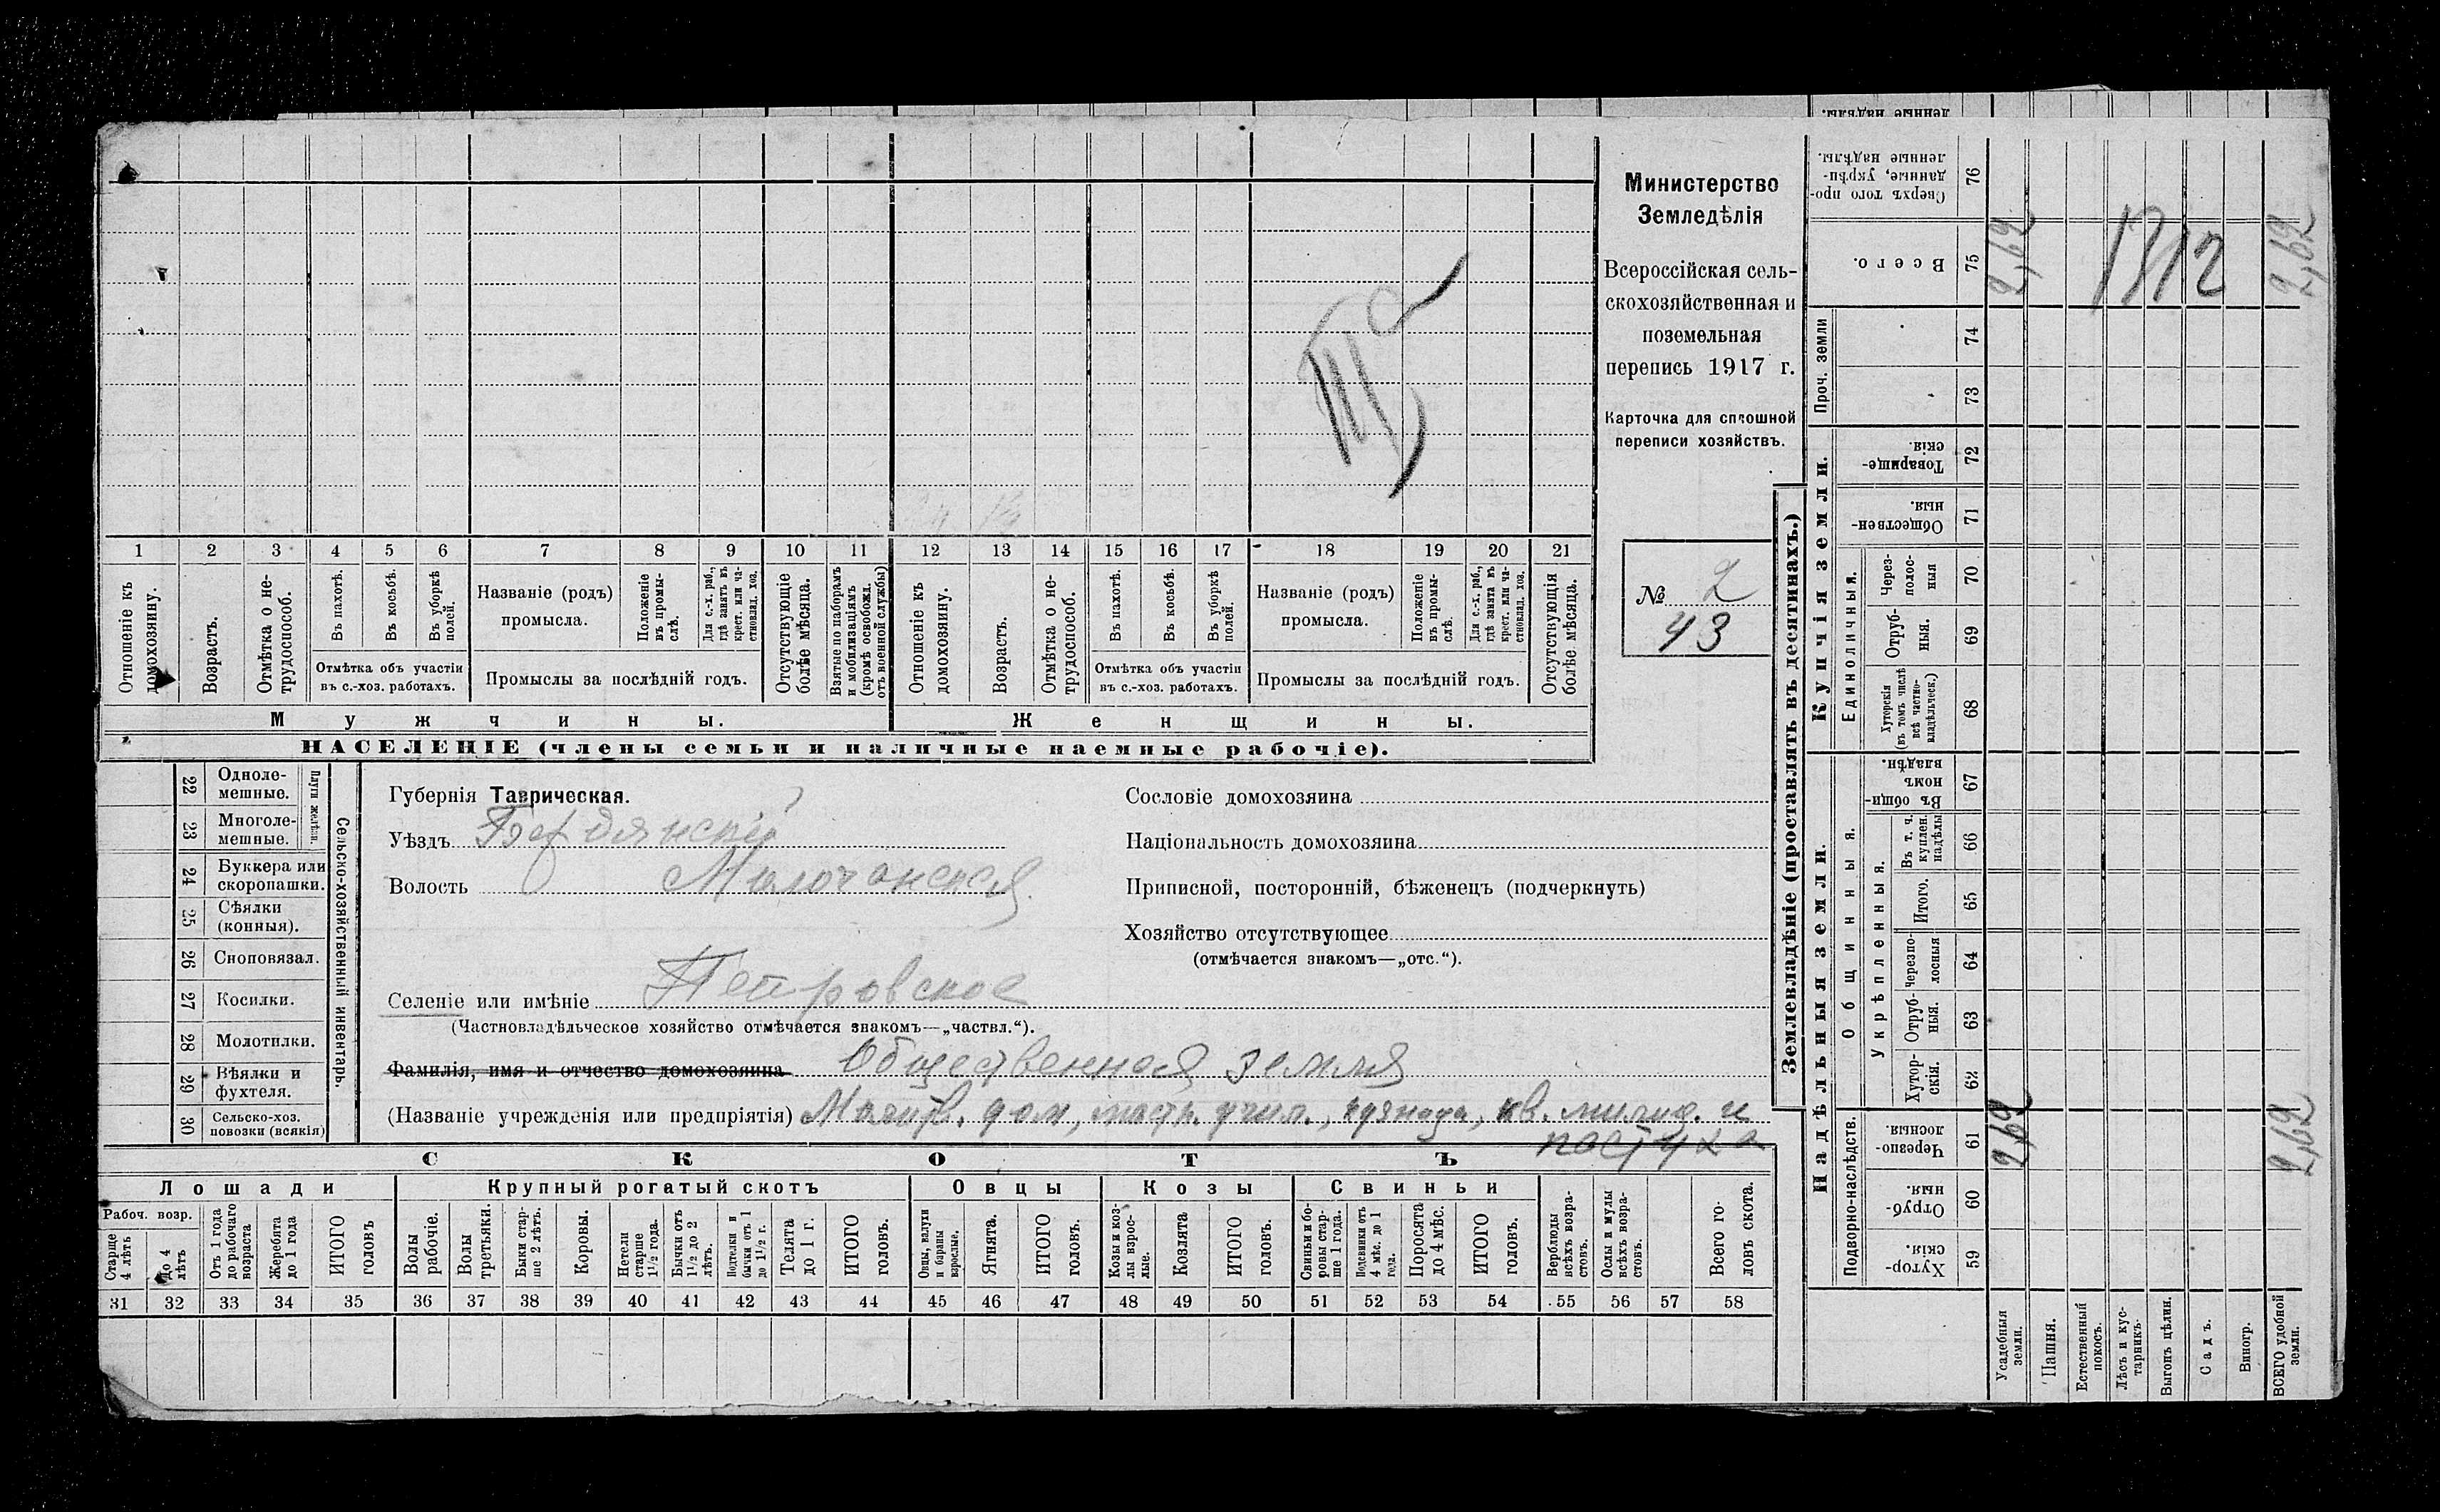 Министерство
Земледѣлія
Всероссійская сель-
скохозяйственная и
поземельная
перепись 1917 г.
Карточка для сплошной
переписи хозяйствъ.
№ 2
43
1 2 3 4 5 6 7 8 9 10 11 12 13 14 15 16 17 18 19 20 21
Отношеніе къ домохозяину.
Возрастъ.
Отмѣтка о не-трудоспособ.
Въ пахотѣ.
Въ косьбѣ.
Въ уборкѣ полей.
Отмѣтка объ участіи
въ с.-хоз. работахъ.
Названіе (родъ)
промысла.
Положеніе въ промы-слѣ.
Для с.-х. раб., гдѣ занятъ въ крест. или ча-стновлад. хоз.
Промыслы за послѣдній годъ.
Отсутствующіе болѣе мѣсяца.
Взятые по наборамъ и мобилизаціямъ (кромѣ освобожд. отъ военной службы)
Отношеніе къ домохозяину.
Возрастъ.
Отмѣтка о не-трудоспособ.
Въ пахотѣ.
Въ косьбѣ.
Въ уборкѣ полей.
Отмѣтка объ участіи
въ с.-хоз. работахъ.
Названіе (родъ)
промысла.
Положеніе въ промы-слѣ.
Для с.-х. раб., гдѣ занята въ крест. или ча-стновлад. хоз.
Промыслы за послѣдній годъ.
Отсутствующія болѣе мѣсяца.
Мужчины.
Женщины.
НАСЕЛЕНІЕ (члены семьи и наличные наемные рабочіе).
Сельско-хозяйственный инвентарь.
Плуги желѣзн.
22 Одноле-мешные.
23 Многоле-мешные.
24 Буккера или скоропашки.
25 Сѣялки (конныя).
26 Сноповязал.
27 Косилки.
28 Молотилки.
29 Вѣялки и фухтеля.
30 Сельско-хоз. повозки (всякія)
Губернія Таврическая.
Уѣздъ Бердянскій
Волость Молочанская
Селеніе или имѣніе Петровское
(Частновладѣльческое хозяйство отмѣчается знакомъ—„частвл.“).
Фамилія, имя и отчество домохозяина Общественная земля
(Названіе учрежденія или предпріятія) Молитв. дом, настр. учил., кузница, кв. милиц. и
пастуха
Сословіе домохозяина
Національность домохозяина
Приписной, посторонній, бѣженецъ (подчеркнуть)
Хозяйство отсутствующее
(отмѣчается знакомъ—„отс.“).
СКОТЪ
Лошади
Крупный рогатый скотъ
Овцы
Козы
Свиньи
Рабоч. возр.
Старше 4 лѣтъ
До 4 лѣтъ
Отъ 1 года до рабочаго возраста
Жеребята до 1 года
ИТОГО головъ
Волы рабочіе.
Волы третьяки.
Быки стар-ше 2 лѣтъ.
Коровы.
Нетели старше 1½ года.
Бычки отъ 1½ до 2 лѣтъ.
Подтелки и бычки отъ 1 до 1½ г.
Телята до 1 г.
ИТОГО головъ.
Овцы, валухи и бараны взрослые.
Ягнята.
ИТОГО головъ.
Козы и коз-лы взрос-лые.
Козлята
ИТОГО головъ.
Свиньи и бо-ровы стар-ше 1 года.
Подсвинки отъ 4 мѣс. до 1 года.
Поросята до 4 мѣс.
ИТОГО головъ.
Верблюды всѣхъ возра-стовъ.
Ослы и мулы всѣхъ возра-стовъ.
Всего го-ловъ скота.
31 32 33 34 35 36 37 38 39 40 41 42 43 44 45 46 47 48 49 50 51 52 53 54 55 56 57 58
Землевладѣніе (проставлять въ десятинахъ.)
ленные надѣлы.
Сверхъ того про-данные, укрѣп-ленные надѣлы. 76
Всего. 75 2,62 1312 2,62
Проч. земли
74
73
Купчія земли.
Товарище-скія. 72
Обществен-ныя. 71
Единоличныя.
Через-полос-ныя 70
Отруб-ныя. 69
Хуторскія (въ томъ числѣ всѣ частно-владѣльческ.) 68
Надѣльныя земли.
Общинныя.
Въ общин-номъ владѣн. 67
Укрѣпленныя.
Въ т. ч. куплен. надѣлы 66
Итого. 65
Черезпо-лосныя 64
Отруб-ныя. 63
Хутор-скія. 62
Подворно-наслѣдств.
Черезпо-лосныя. 61 2,62 2,62
Отруб-ныя. 60
Хутор-скія. 59
Усадебныя земли.
Пашня.
Естественный покосъ.
Лѣсъ и кус-тарникъ.
Выгонъ цѣлин.
Садъ.
Виногр.
ВСЕГО удобной земли.